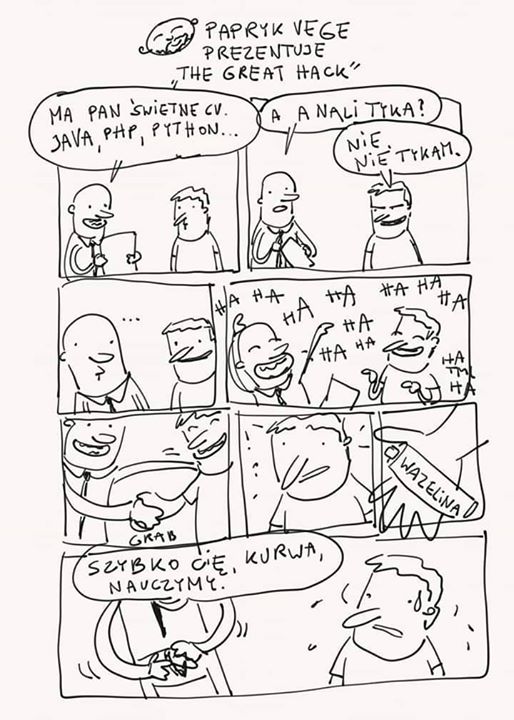 PAPRYK VEGE
PREZENTUJE
"THE GREAT HACK"
MA PAN ŚWIETNE CV.
JAVA, PHP, PYTHON...
A ANALITYKA?
NIE.
NIE TYKAM.
...
HA HA HA HA HA HA HA
HA HA HA
HA
HA
GRAB
WAZELINA
SZYBKO CIĘ, KURWA,
NAUCZYMY.